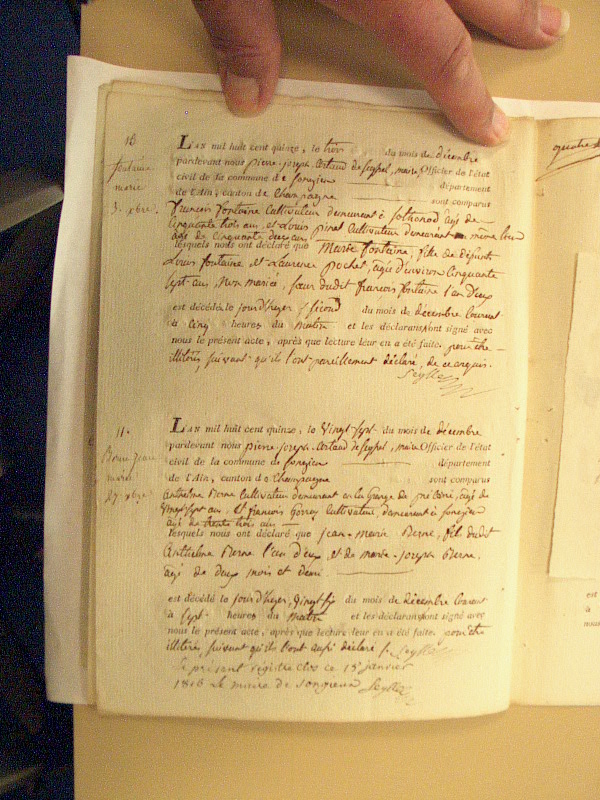 10
fontaine
marie
3. xbre.
L'AN mil huit cent quinze, le trois du mois de décembre
pardevant nous pierre-joseph-artaud de Seyssel, maire, Officier de l'état
civil de la commune de Songieu département
de l'Ain, canton de Champagne sont comparus
françois fontaine Cultivateur demeurant à Sothonod agé de
Cinquante trois ans, et Louis pinet Cultivateur demeurant même lieu
agé de Cinquante deux ans
lesquels nous ont déclaré que Marie fontaine, fille de défunt
Louis fontaine, et Laurence pochet, agée d'environ Cinquante
sept ans, Non mariée, Sœur dudit françois fontaine l'un d'eux
est décédée le jour d'hyer, Second du mois de décembre Courant
à Cinq heures du matin et les déclarans ont signé avec
nous le présent acte, après que lecture leur en a été faite, pour être
illitérés, suivant qu'ils l'ont pareillement déclaré, de ce enquis.
11.
Berne jean
marie
27. xbre
L'AN mil huit cent quinze, le Vingt Sept du mois de décembre
pardevant nous pierre-joseph-artaud de Seyssel, maire Officier de l'état
civil de la commune de Songieu département
de l'Ain, canton de Champagne sont comparus
Anthelme Berne Cultivateur demeurant en la Grange de agé de
Vingt sept ans, et françois Cultivateur demeurant à Songieu
agé de trente trois ans
lesquels nous ont déclaré que jean-Marie Berne, fils dudit
Anthelme Berne l'un d'eux, et de marie-joseph Berne,
agé de deux mois et demi
est décédé le jour d'hyer, Vingt Six du mois de décembre Courant
à Sept heures du Matin et les déclarans ont signé avec
nous le présent acte, après que lecture leur en a été faite, pour être
illitérés, suivant qu'ils l'ont aussi déclaré
le présent registre clos ce 15 janvier
1816 le maire de Songieux
quatre
est
à
nous